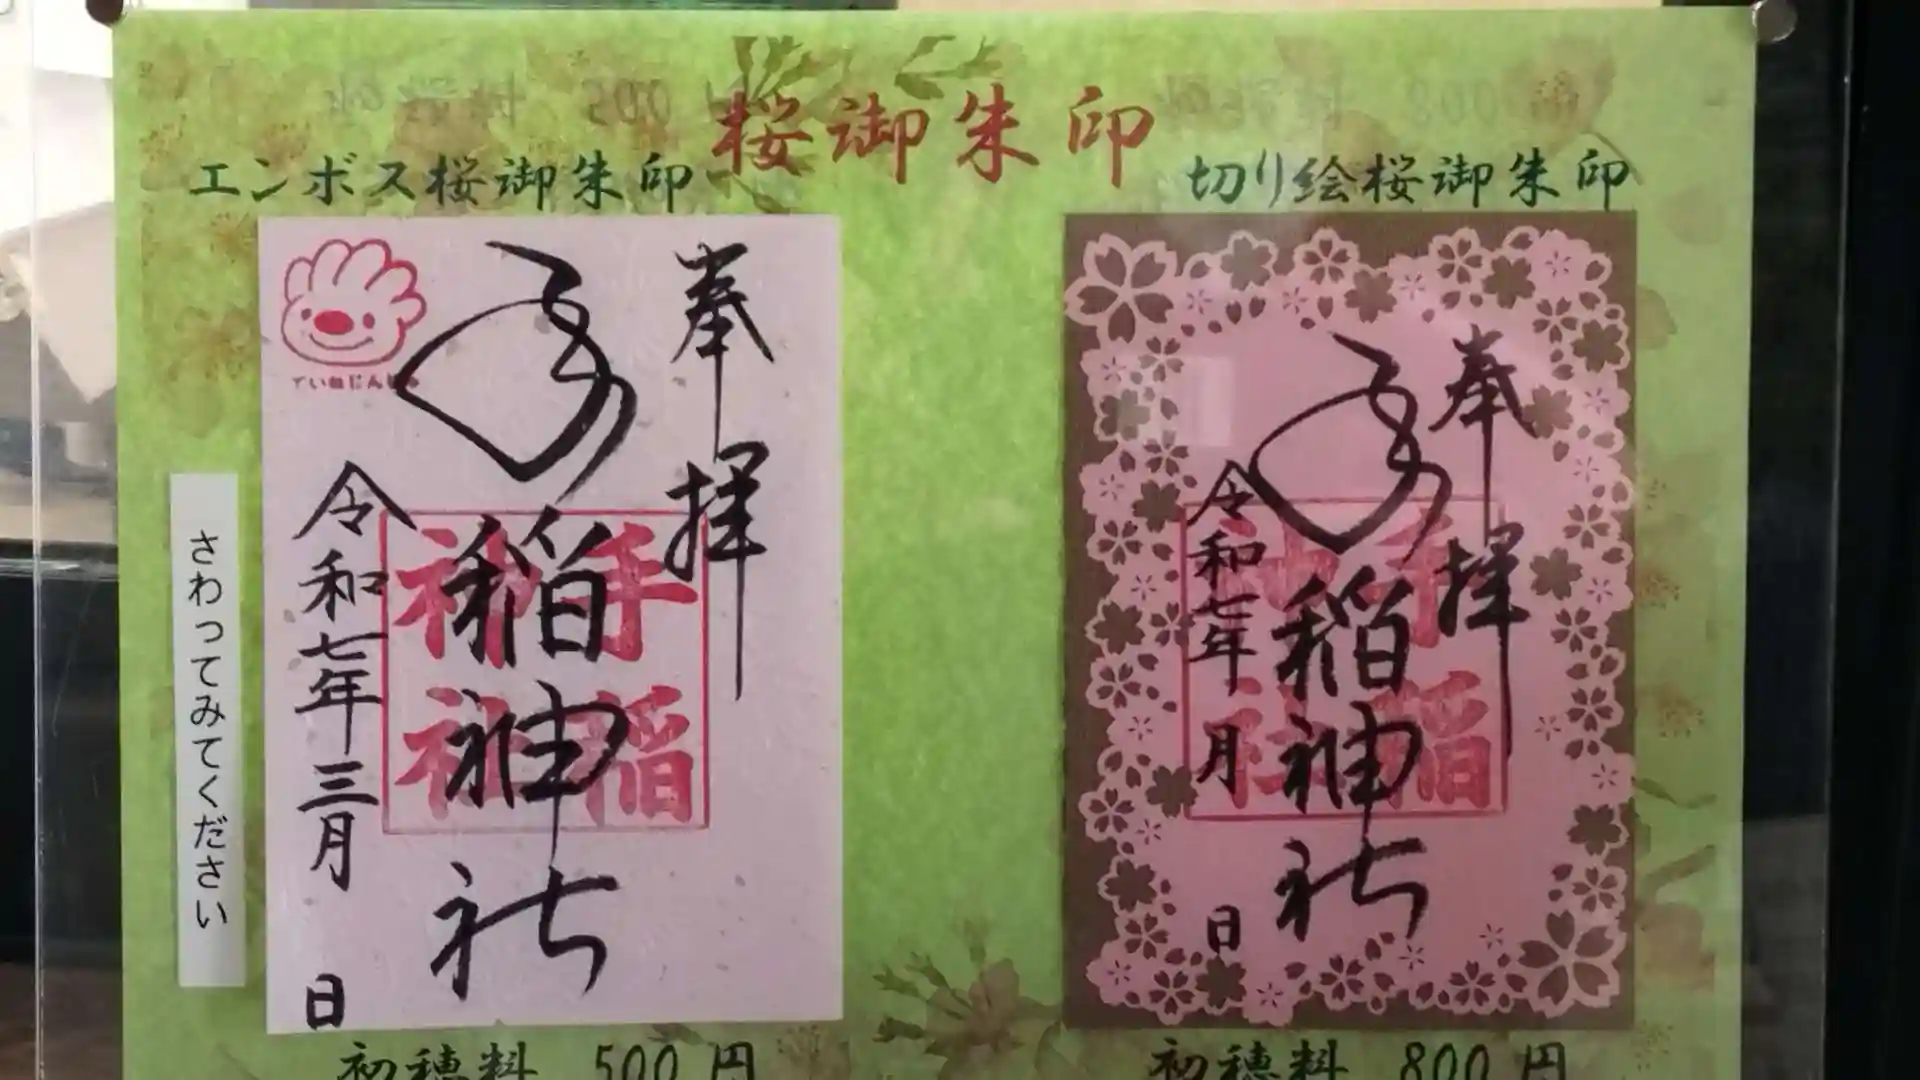 桜御朱印
エンボス桜御朱印
切り絵桜御朱印
さわってみてください
ていねじんじゃ
奉拝
手稲神社
令和七年三月
日
手稲
神社
初穂料 500円
奉拝
手稲神社
令和七年
月
日
手稲
神社
初穂料 800円